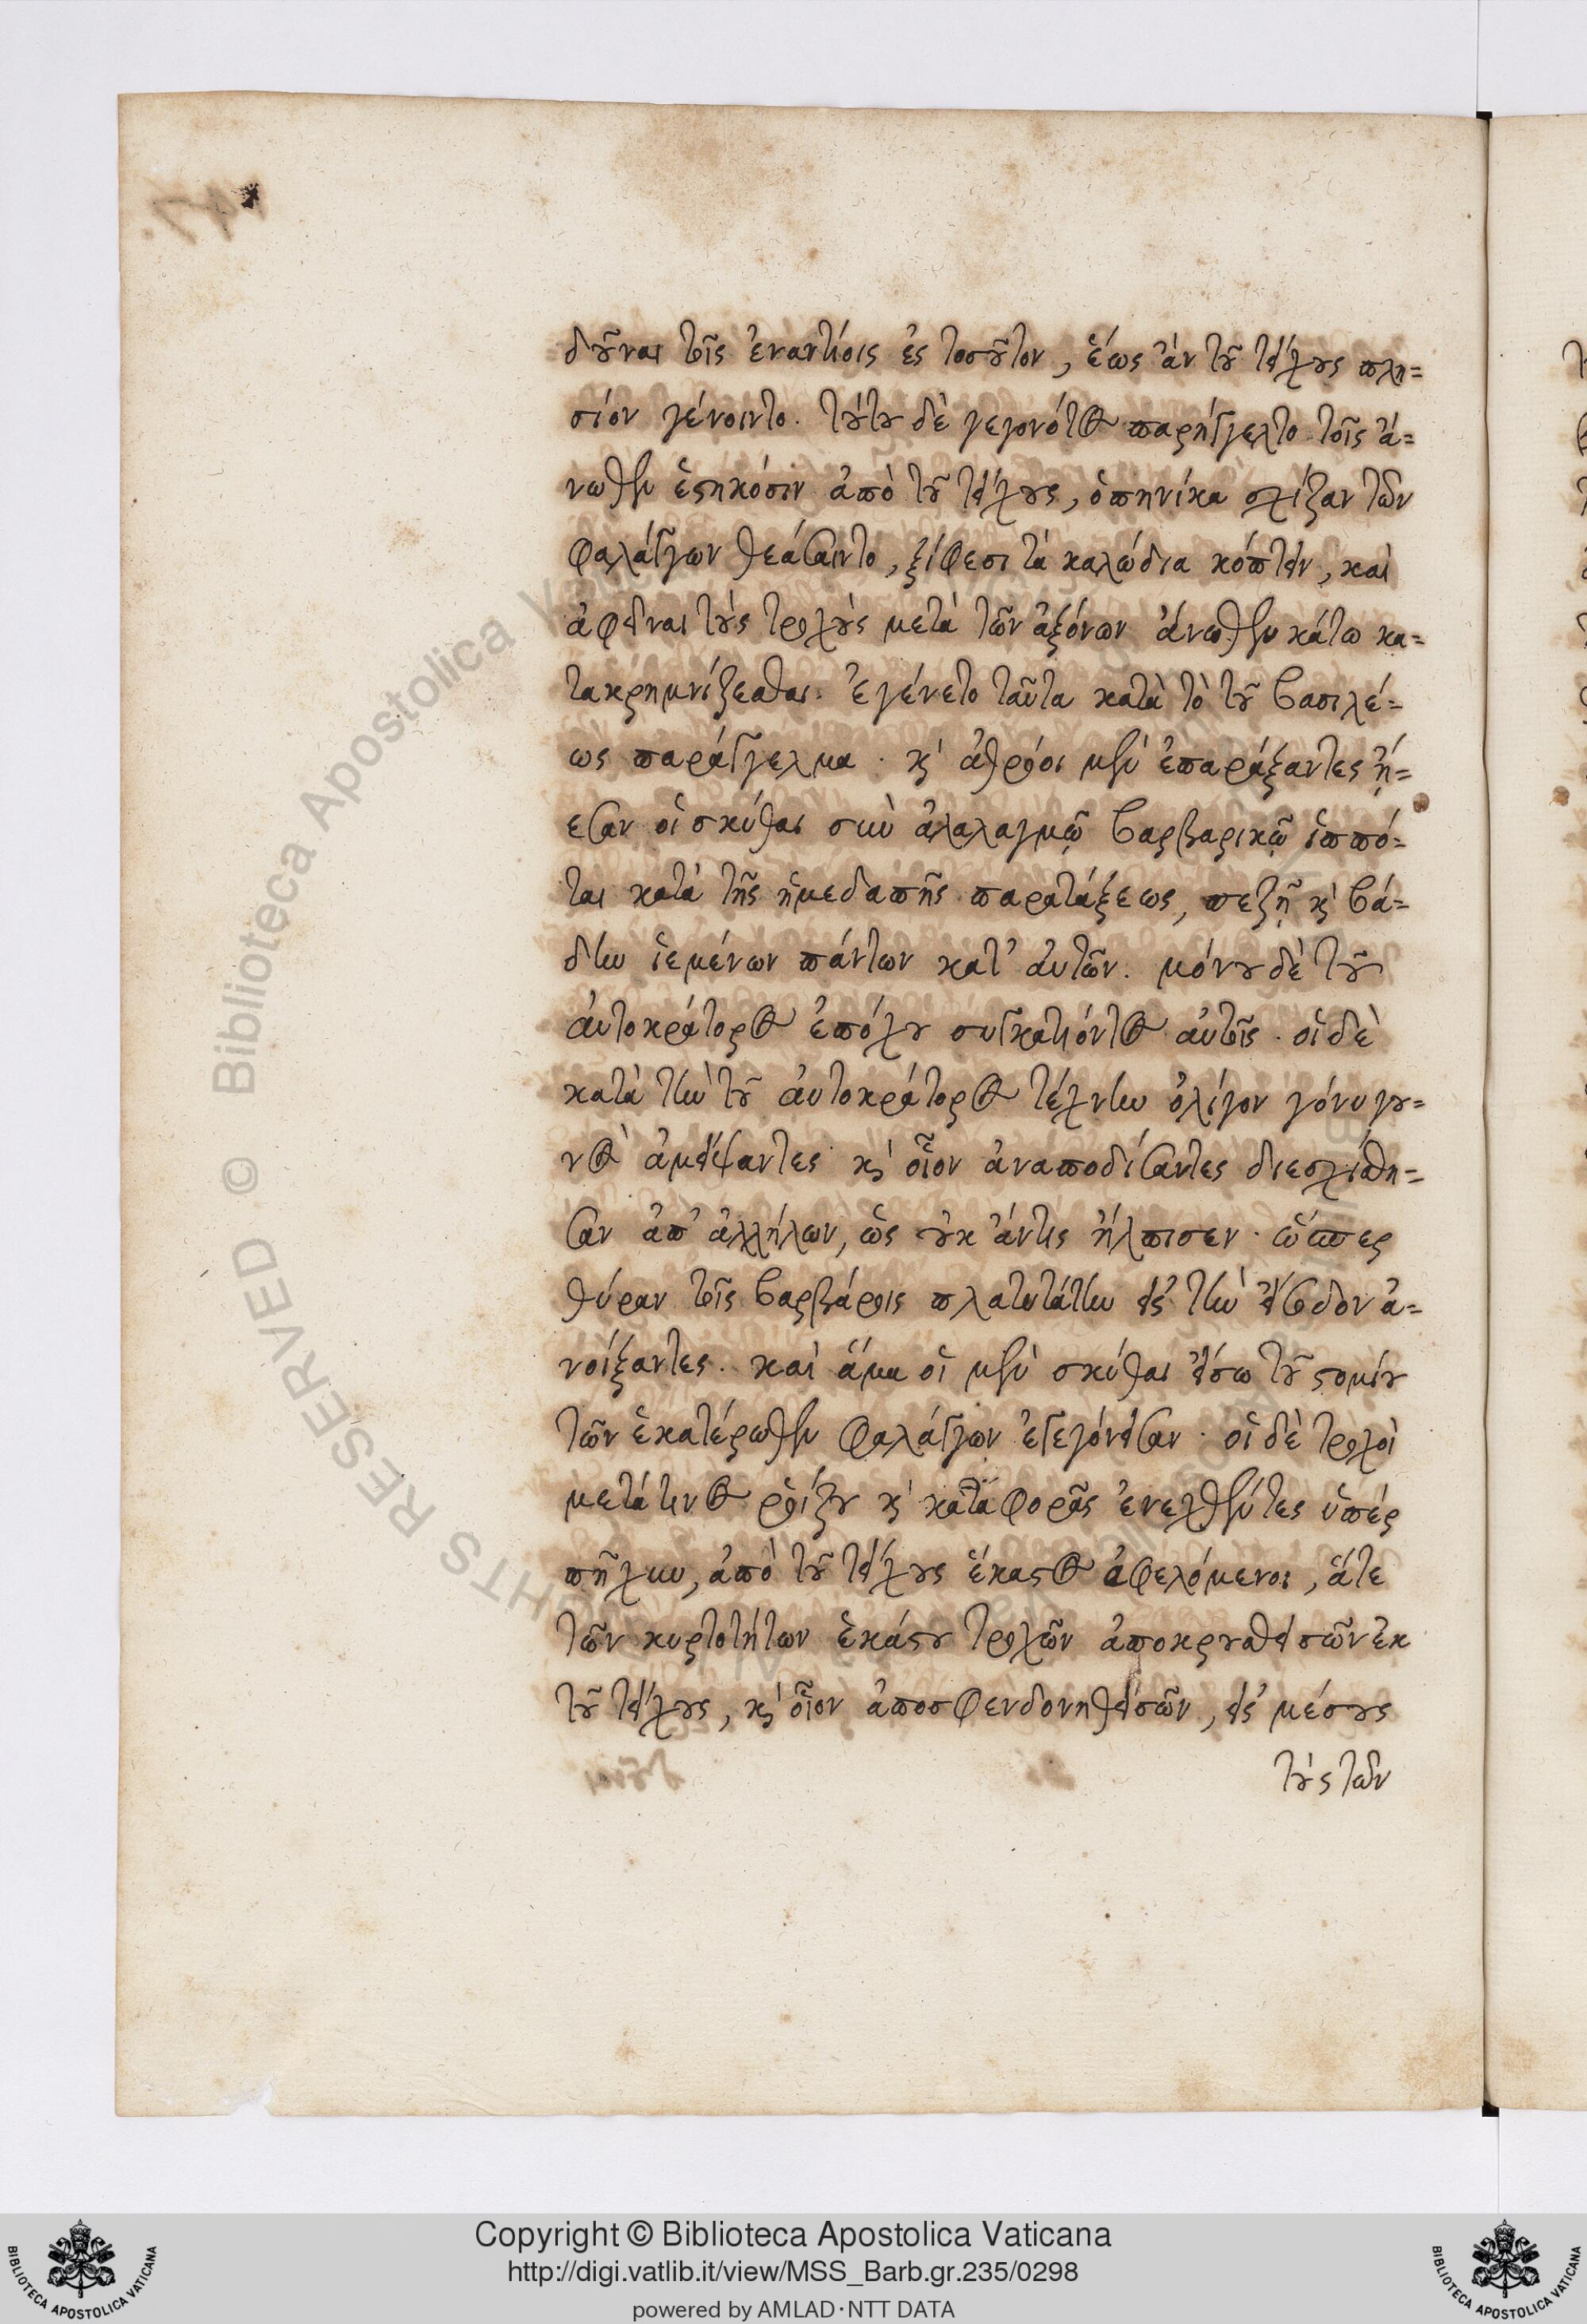 δοῦναι τοῖς ἐναντίοις ἐς τοσοῦτον, ἕως ἀν τοῦ τείχους πλη=
σίον γένοιντο. τούτου δὲ γεγονότος παρήγγελτο τοῖς ἀ=
νωθεν ἑστηκόσιν ἀπὸ τοῦ τείχους, ὁπηνίκα σχίζαν τῶν
φαλάγγων θεάσαιντο, ξίφεσι τὰ καλώδια κόπτειν, καὶ
ἀφεῖναι τοὺς τροχοὺς μετὰ τῶν ἀξόνων ἄνωθεν κάτω κα=
τακρημνίζεσθαι. ἐγένετο ταῦτα κατὰ τὸ τοῦ βασιλέ=
ως παράγγελμα. κὶ ἀθρόοι μὲν ἐπαράξαντες ᾔ=
εσαν οἱ σκύθαι σὺν ἀλαλαγμῷ βαρβαρικῷ ἱππό=
ται κατὰ τῆς ἡμεδαπῆς παρατάξεως, πεζῇ κὶ βά=
δην ἱεμένων πάντων κατ' αὐτῶν. μόνου δὲ τοῦ
αὐτοκράτορος ἐπόχου συγκατιόντος αὐτοῖς. οἱ δὲ
κατὰ τὴν τοῦ αὐτοκράτορος τέχνην ὀλίγον γόνυ γου=
νὸς ἀμείψαντες κὶ οἷον ἀναποδίσαντες διεσχίσθη=
σαν ἀπ' ἀλλήλων, ὡς οὐκ ἄν τις ἤλπισεν. ὥσπερ
θύραν τοῖς βαρβάροις πλατυτάτην εἰς τὴν εἴσοδον ἀ=
νοίξαντες. καὶ ἅμα οἱ μὲν σκύθαι εἴσω τοῦ στομίου
τῶν ἑκατέρωθεν φαλάγγων ἐγεγόνεισαν. οἱ δὲ τροχοὶ
μετά τινος ῥοίζου κὶ καταφορᾶς ἐνεχθέντες ὑπέρ
πῆχυν, ἀπὸ τοῦ τείχους ἕκαστος ἀφελόμενοι, ἅτε
τῶν κυρτοτήτων ἑκάστου τροχῶν ἀποκρουσθεισῶν ἐκ
τοῦ τείχους, κὶ οἷον ἀποσφενδονηθεισῶν, εἰς μέσους
τοὺς τῶν
Copyright © Biblioteca Apostolica Vaticana
http://digi.vatlib.it/view/MSS_Barb.gr.235/0298
powered by AMLAD · NTT DATA